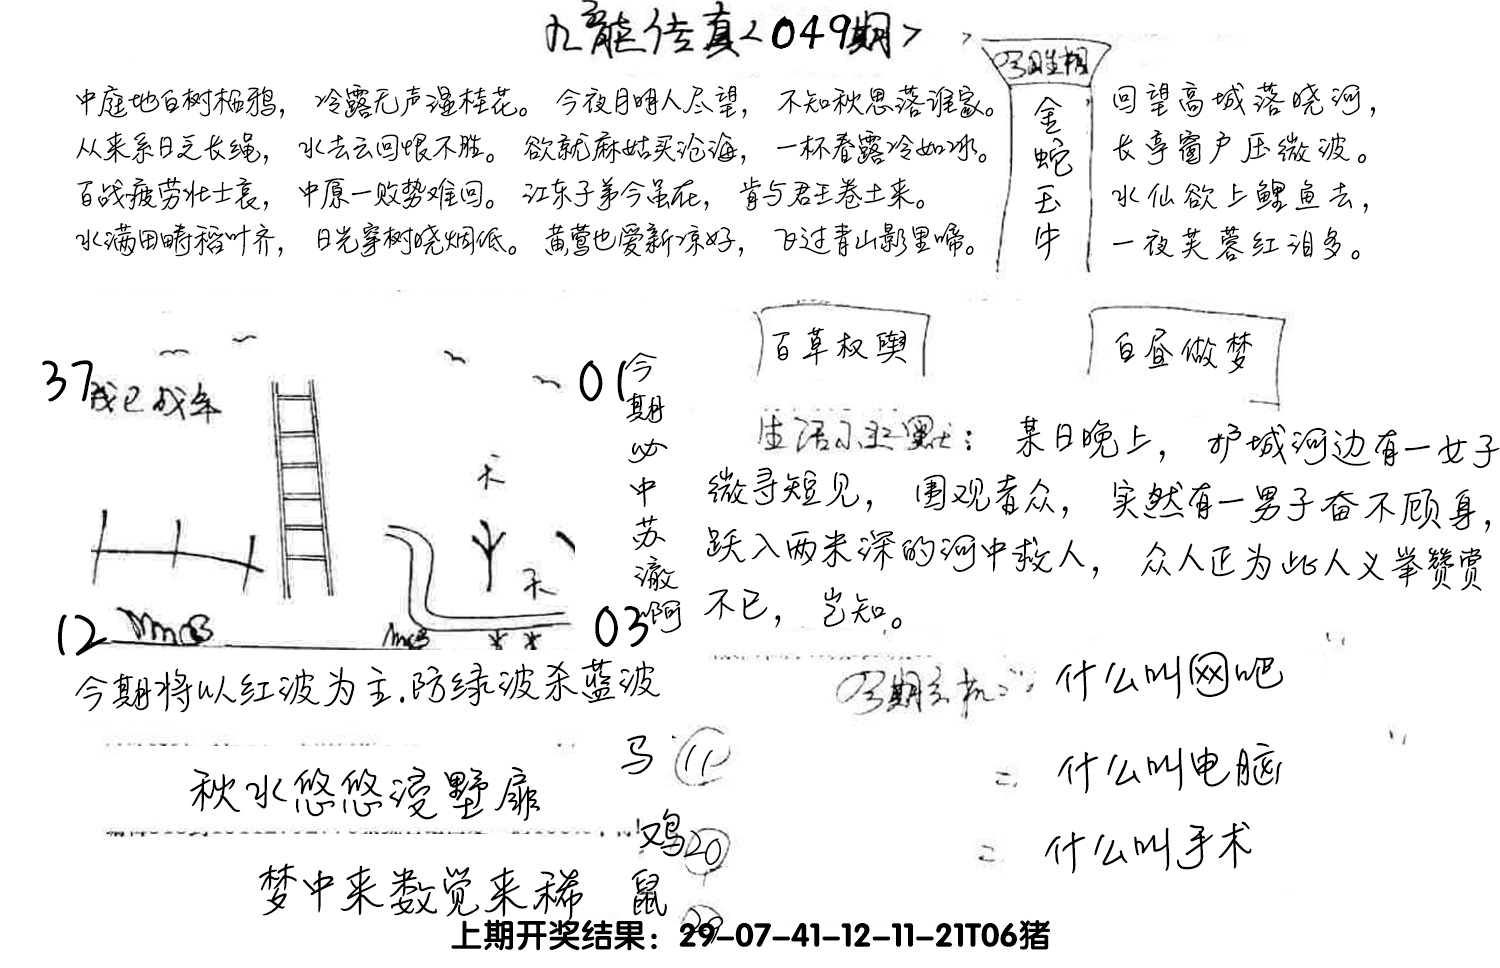 九龙传真<049期>
中庭地白树栖鸦，冷露无声湿桂花。今夜月明人尽望，不知秋思落谁家。
从来系日乏长绳，水去云回恨不胜。欲就麻姑买沧海，一杯春露冷如冰。
百战疲劳壮士哀，中原一败势难回。江东子弟今虽在，肯与君王卷土来。
水满田畴稻叶齐，日光穿树晓烟低。黄莺也爱新凉好，飞过青山影里啼。
金蛇玉牛
回望高城落晓河，
长亭窗户压微波。
水仙欲上鲤鱼去，
一夜芙蓉红泪多。
37
01
12
03
天
天
今期必中苏澈啊
今期将以红波为主.防绿波杀蓝波
秋水悠悠浸墅扉
梦中来数觉来稀
马 11
鸡 20
鼠
百草权舆
白昼做梦
生活幽默：某日晚上，护城河边有一女子
微寻短见，围观者众，实然有一男子奋不顾身，
跃入两米深的河中救人，众人正为此人义举赞赏
不已，岂知。
什么叫网吧
= 什么叫电脑
= 什么叫手术
上期开奖结果：29-07-41-12-11-21T06猪